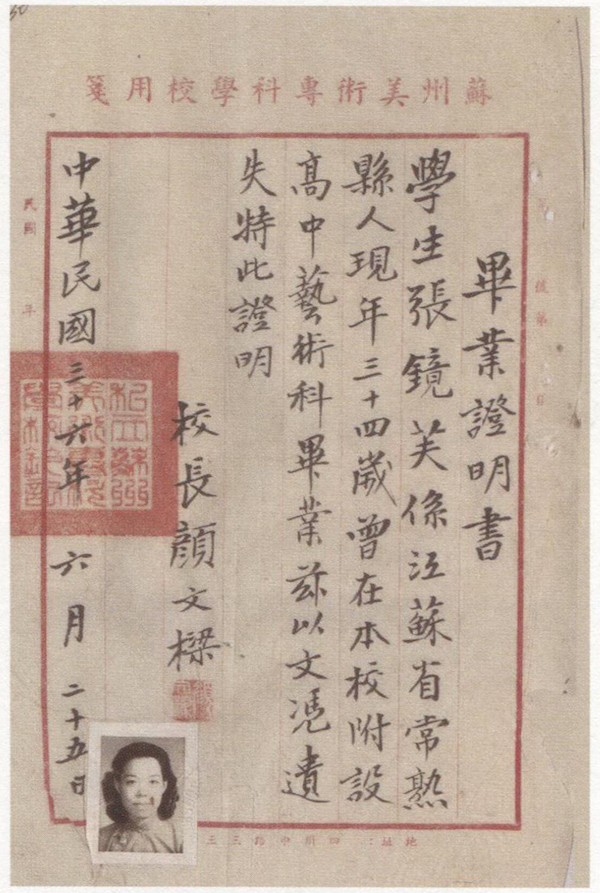 蘇州美術專科學校用箋
畢業證明書
學生張鏡芙係江蘇省常熟
縣人現年三十四歲曾在本校附設
高中藝術科畢業茲以文憑遺
失特此證明
校長顏文樑
中華民國三十六年 六月二十五日
民國 年